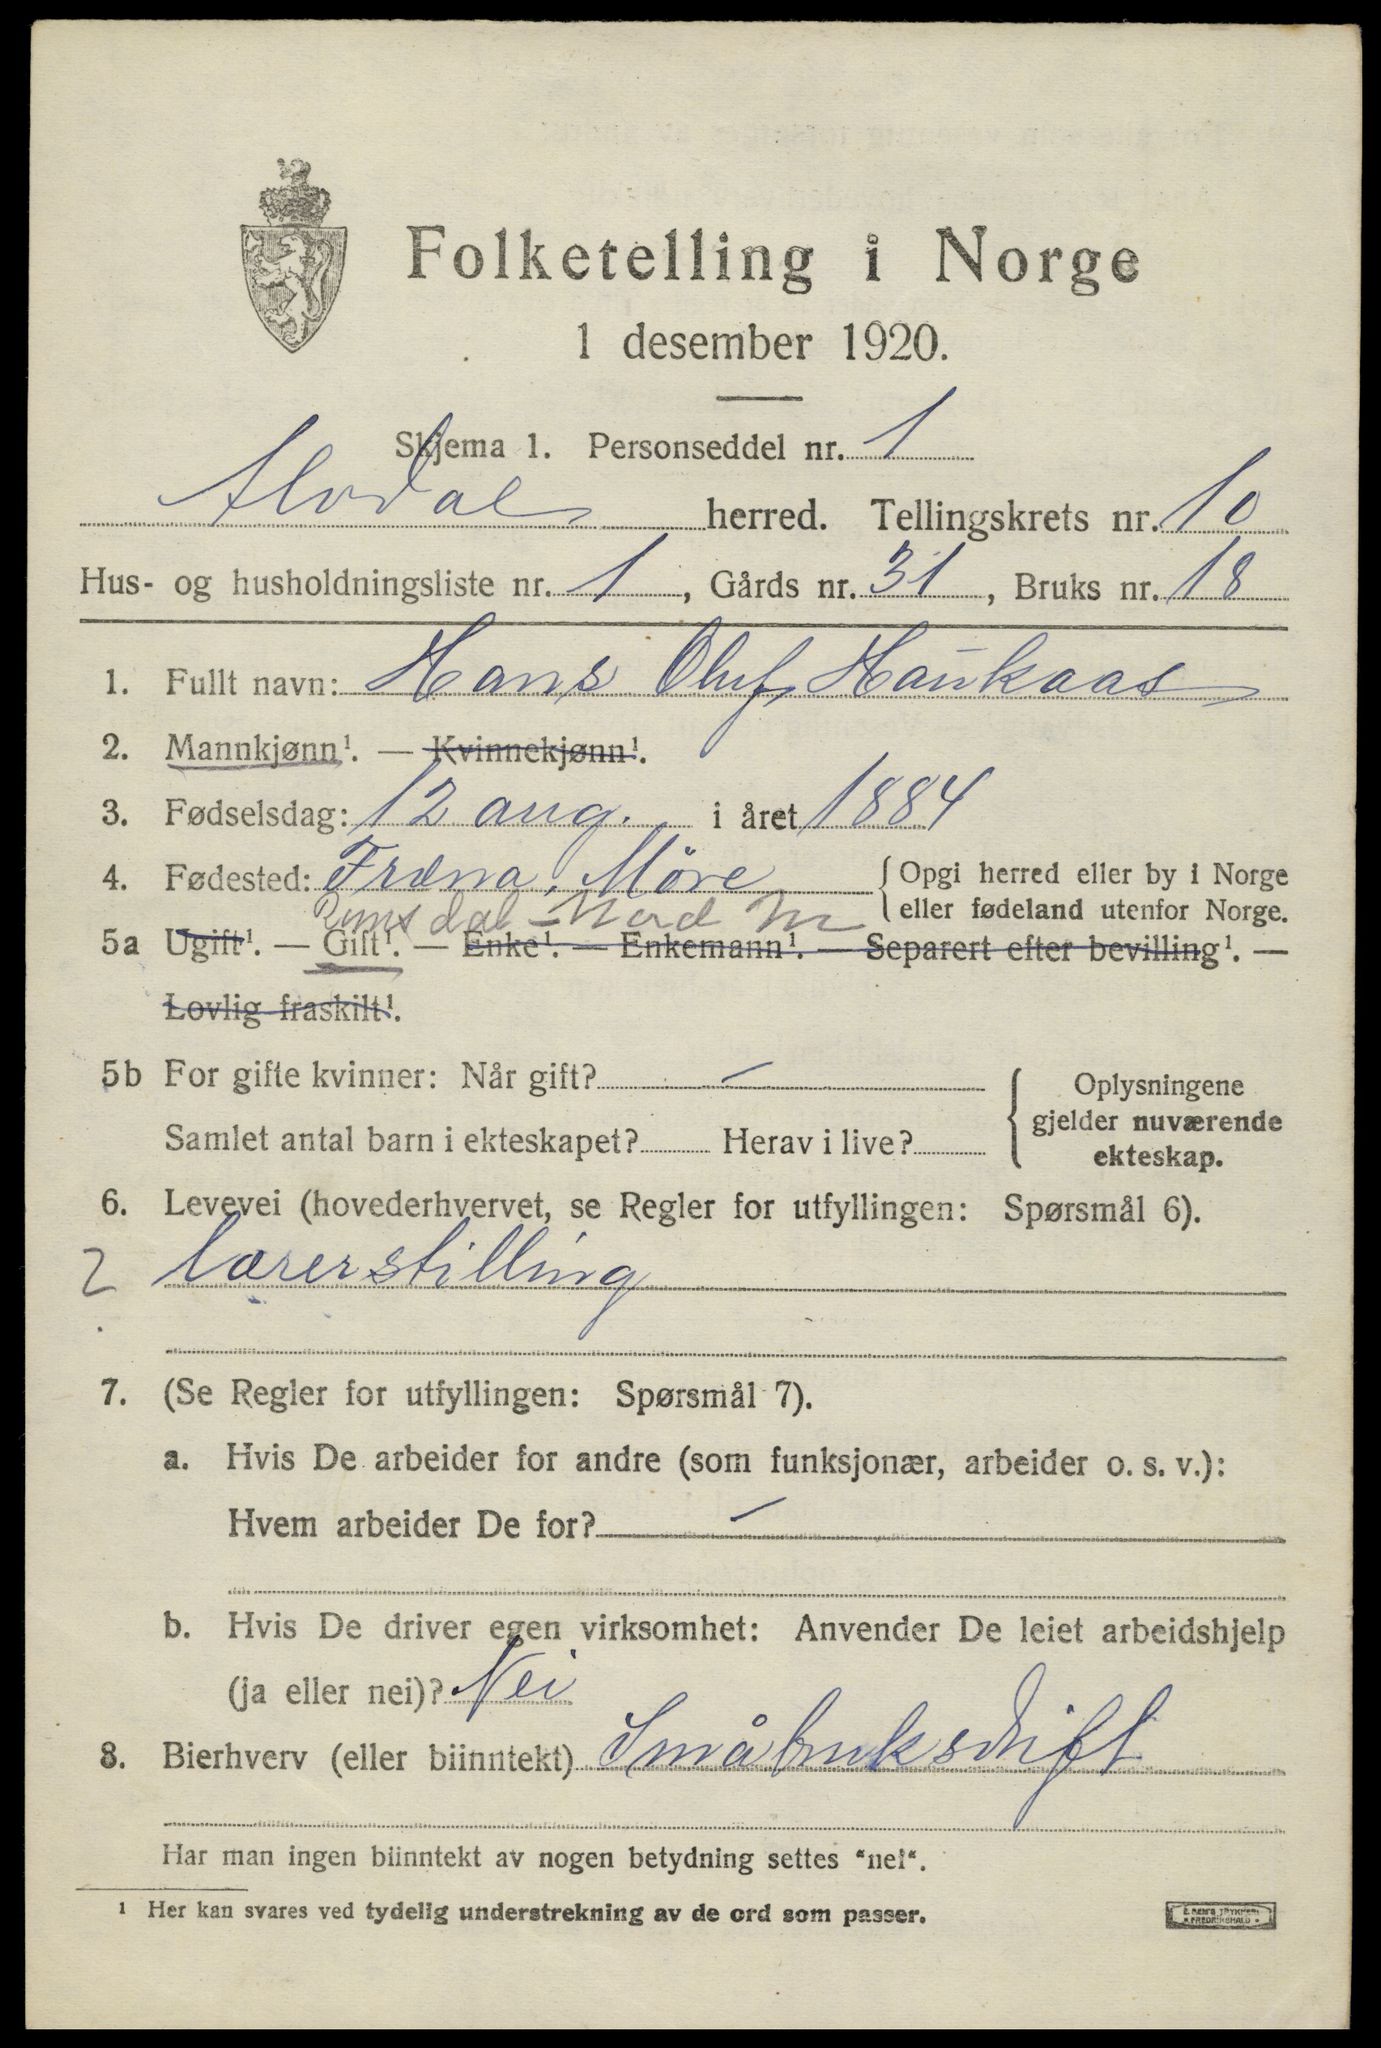 Folketelling i Norge
1 desember 1920.
Skjema 1. Personseddel nr. 1
Alvdal herred. Tellingskrets nr. 10
Hus- og husholdningsliste nr. 1, Gårds nr. 31, Bruks nr. 18
1. Fullt navn: Hans Oluf Haukaas
2. Mannkjønn¹. — Kvinnekjønn¹.
3. Fødselsdag: 12 aug. i året 1884
4. Fødested: Fræna, Möre { Opgi herred eller by i Norge
eller fødeland utenfor Norge.
Romsdal - Nord M
5a Ugift¹. — Gift¹. — Enke¹. — Enkemann¹. — Separert efter bevilling¹. —
Lovlig fraskilt¹.
5b For gifte kvinner: Når gift? —
Samlet antal barn i ekteskapet? Herav i live?
Oplysningene
gjelder nuværende
ekteskap.
6. Levevei (hovederhvervet, se Regler for utfyllingen: Spørsmål 6).
2 lærerstilling
7. (Se Regler for utfyllingen: Spørsmål 7).
a. Hvis De arbeider for andre (som funksjonær, arbeider o. s. v.):
Hvem arbeider De for? —
b. Hvis De driver egen virksomhet: Anvender De leiet arbeidshjelp
(ja eller nei)? Nei
8. Bierhverv (eller biinntekt) Småbruksdrift
Har man ingen biinntekt av nogen betydning settes "nei".
¹ Her kan svares ved tydelig understrekning av de ord som passer.
FREDRIKSHALD